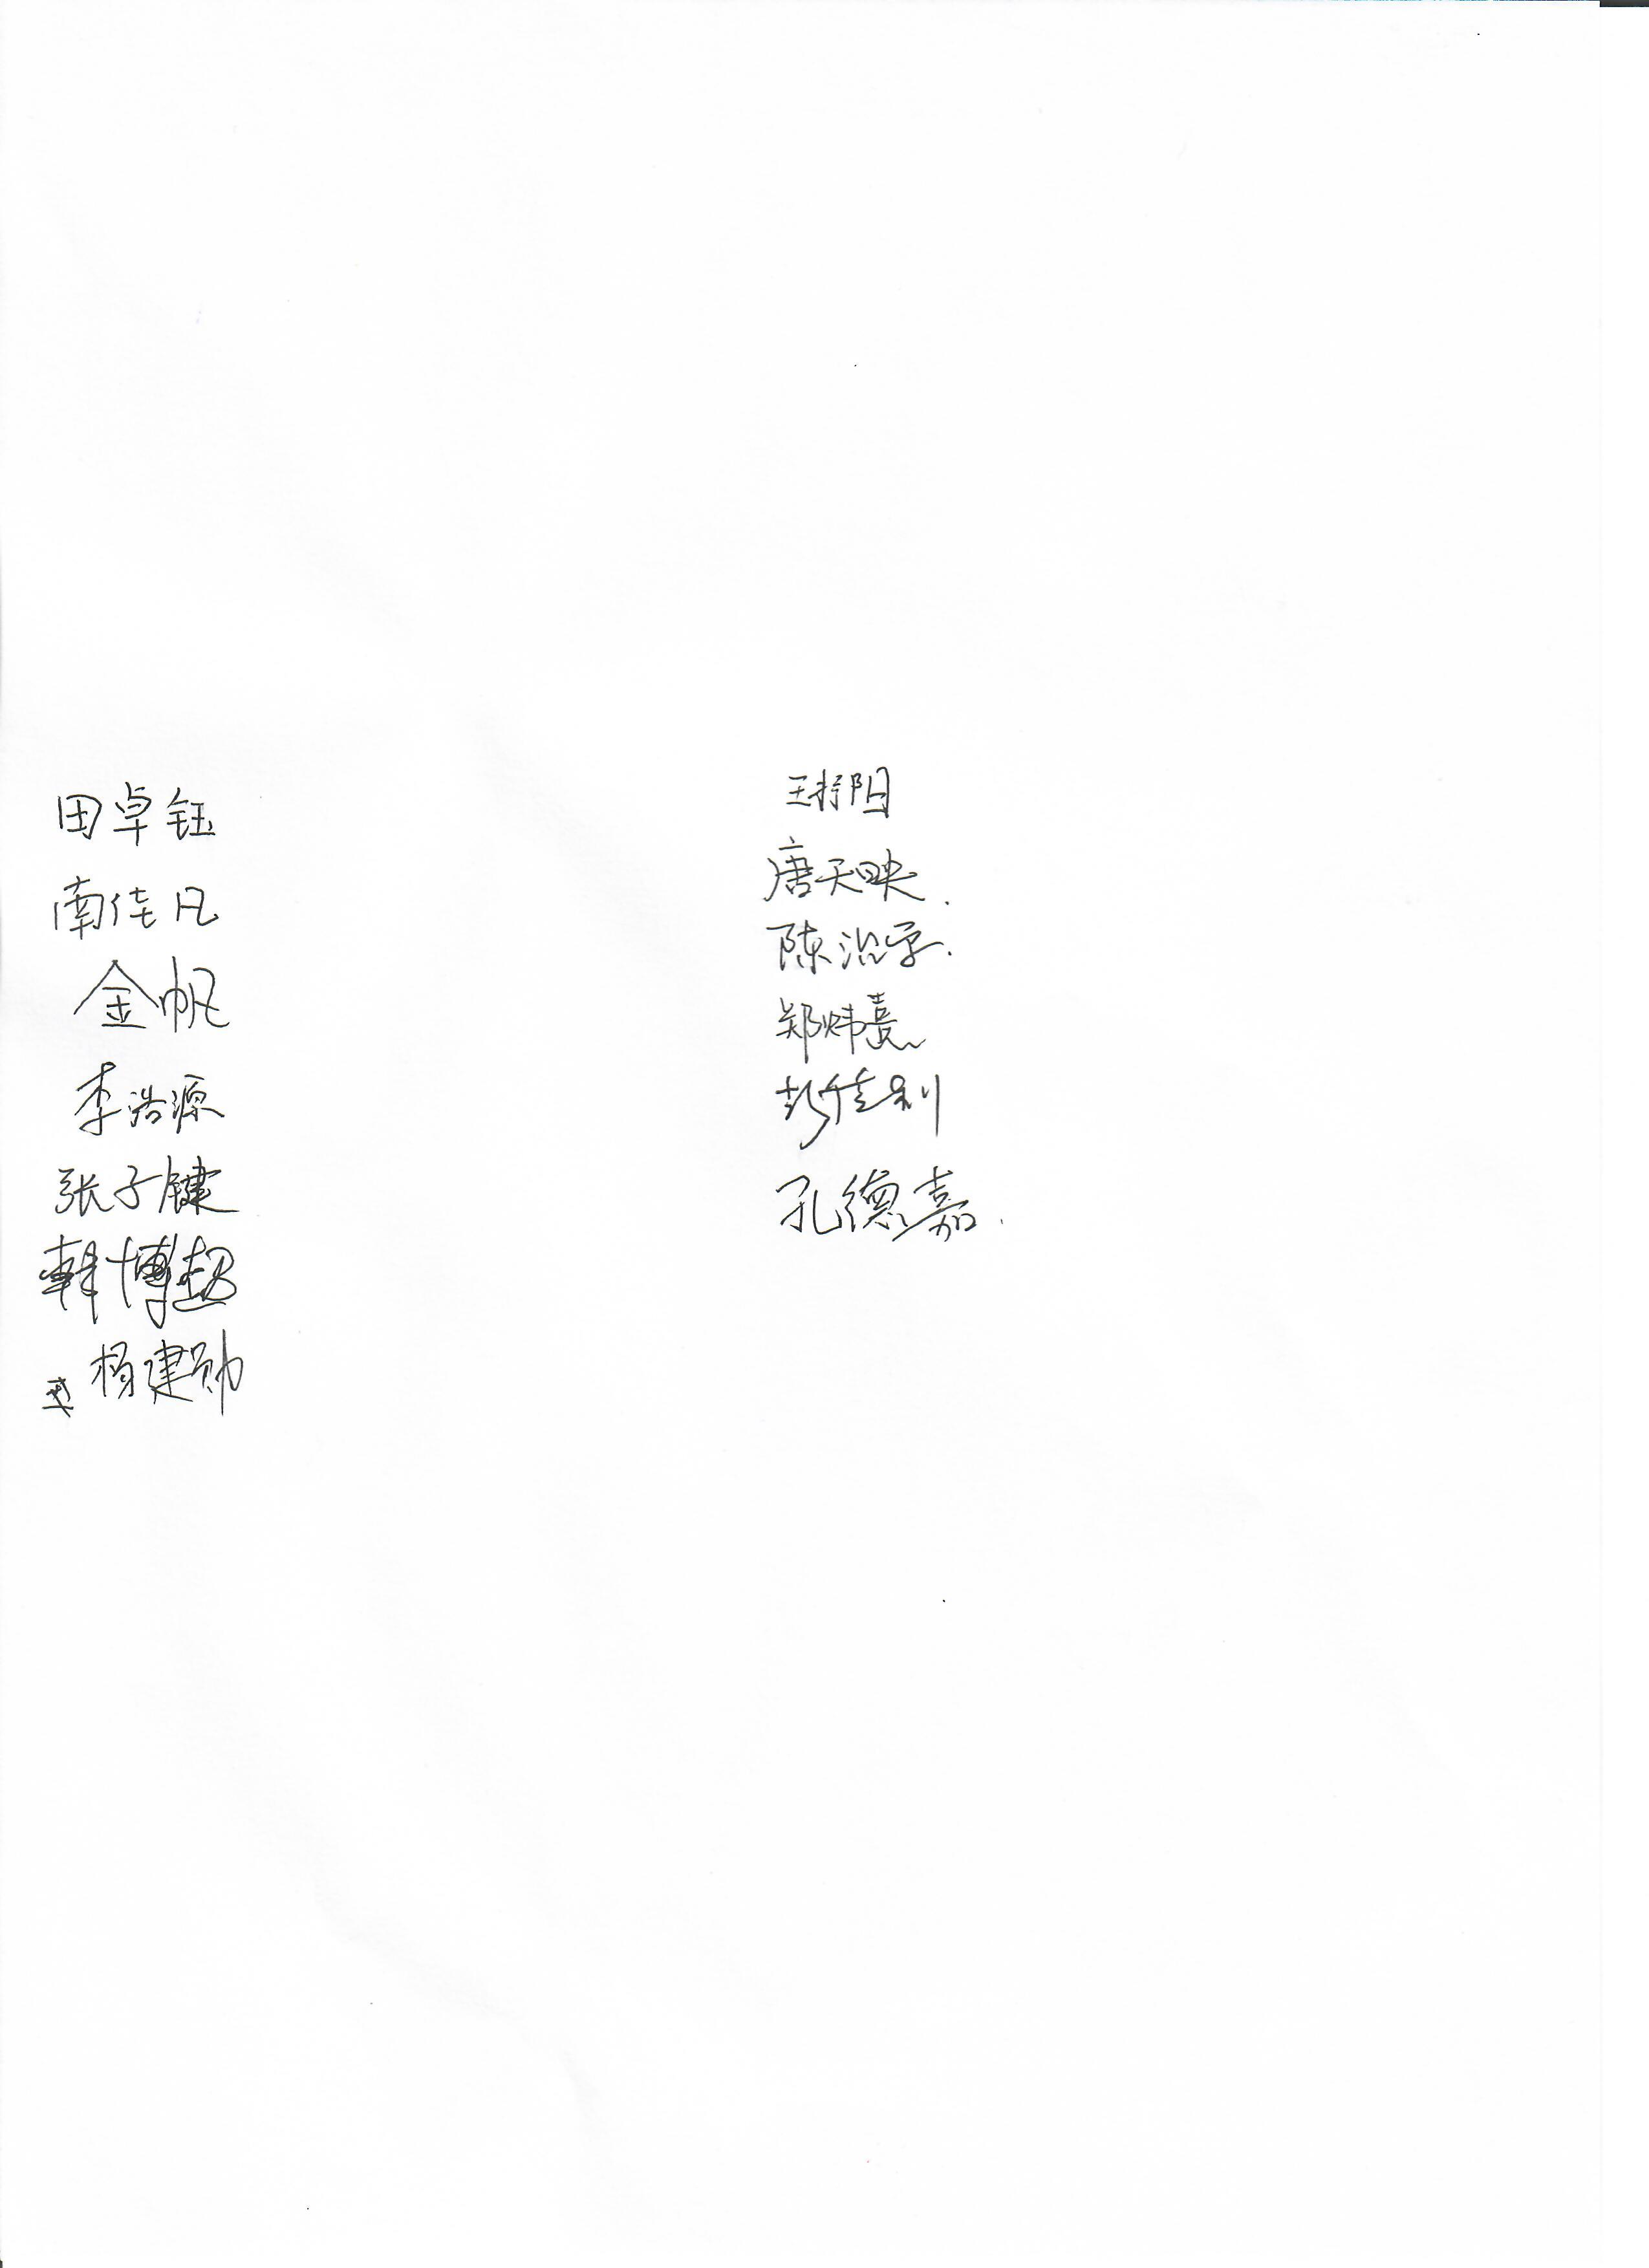 田卓钰
南佳凡
金帆
李浩源
张子健
韩博超
杨建勋
王 阳
唐天映.
陈治宇.
郑炜熹
彭佳
孔德嘉.